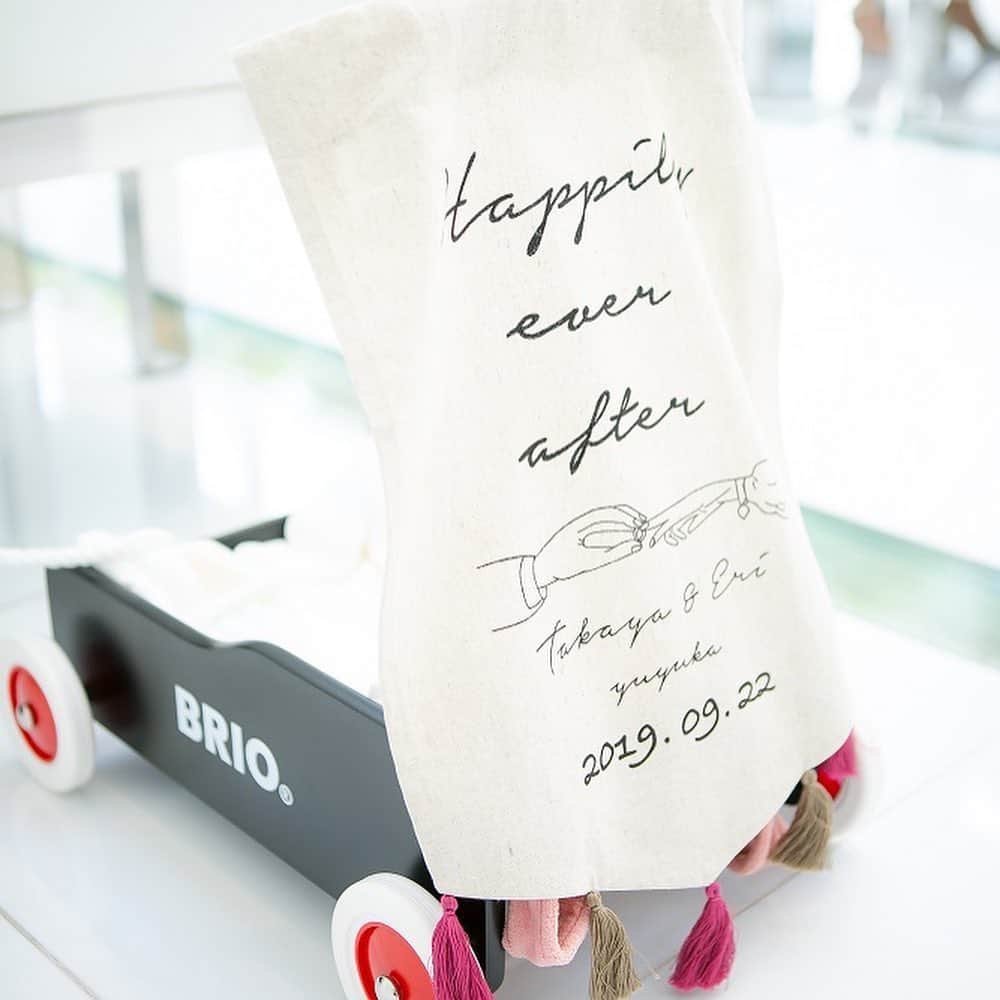 Happily
ever
after
Takaya & Eri
yuyuka
2019.09.22
BRIO®